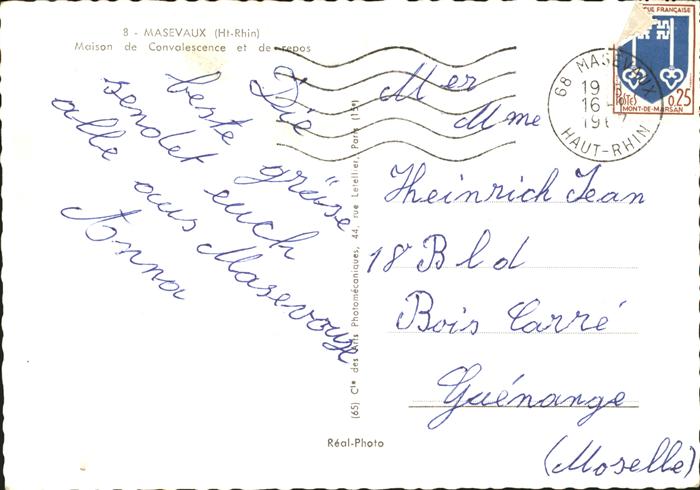 8 - MASEVAUX (Ht-Rhin)
Maison de Convalescence et de repos
Die
beste grüse
sendet euch
alle aus Masevouxe
Anna
(65) Cie des Arts Photomécaniques, 44, rue Letellier, Paris (15e)
Réal-Photo
Mer
Mme
Heinrich Jean
18 Bld
Bois Carré
Guénange
(Moselle)
68 MASEVAUX
19
16 -
HAUT-RHIN
QUE FRANÇAISE
POSTES 0,25
MONT-DE-MARSAN